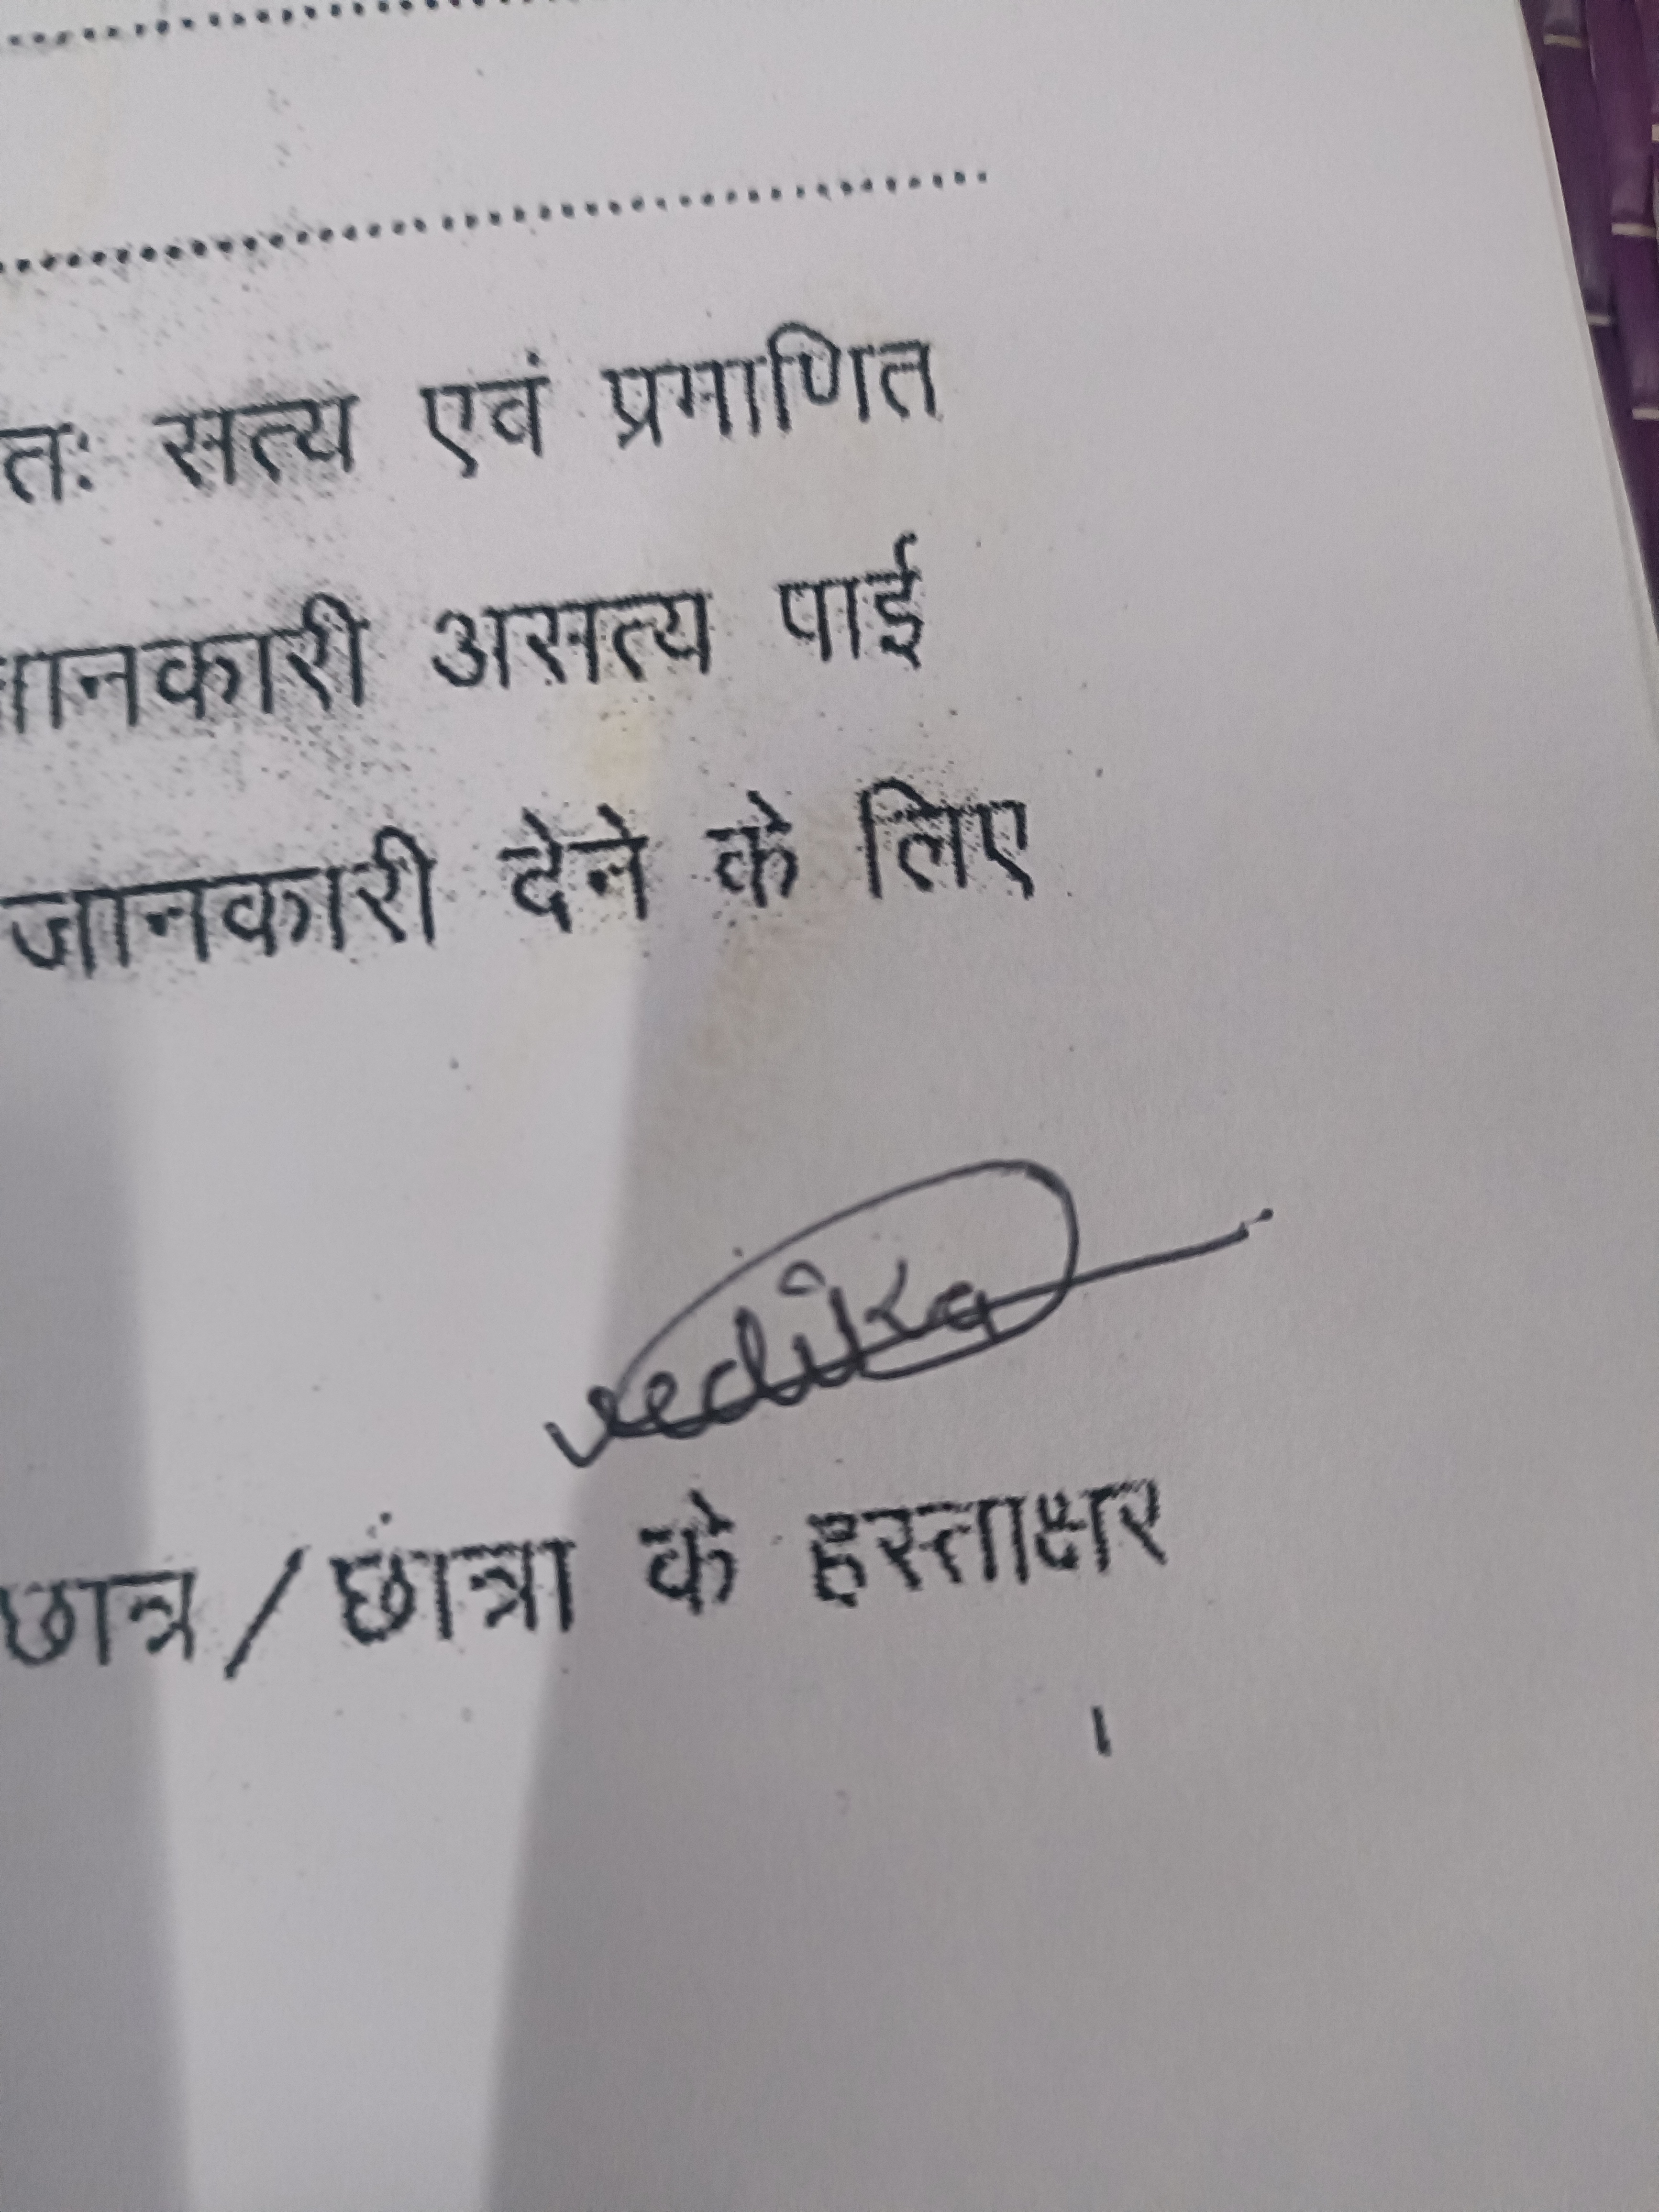 तः सत्य एवं प्रमाणित
जानकारी असत्य पाई
जानकारी देने के लिए
vedika
छात्र/छांत्रा के हस्ताक्षर